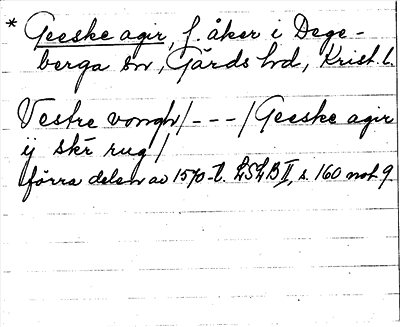 * Geeske agir, f. åker i Dege-
berga sn, Gärds hd, Krist. l.
Vestre vongh/---/Geeske agir
ij skr rug/
förra delen av 1570-t. LSLB II, s. 160 not 9